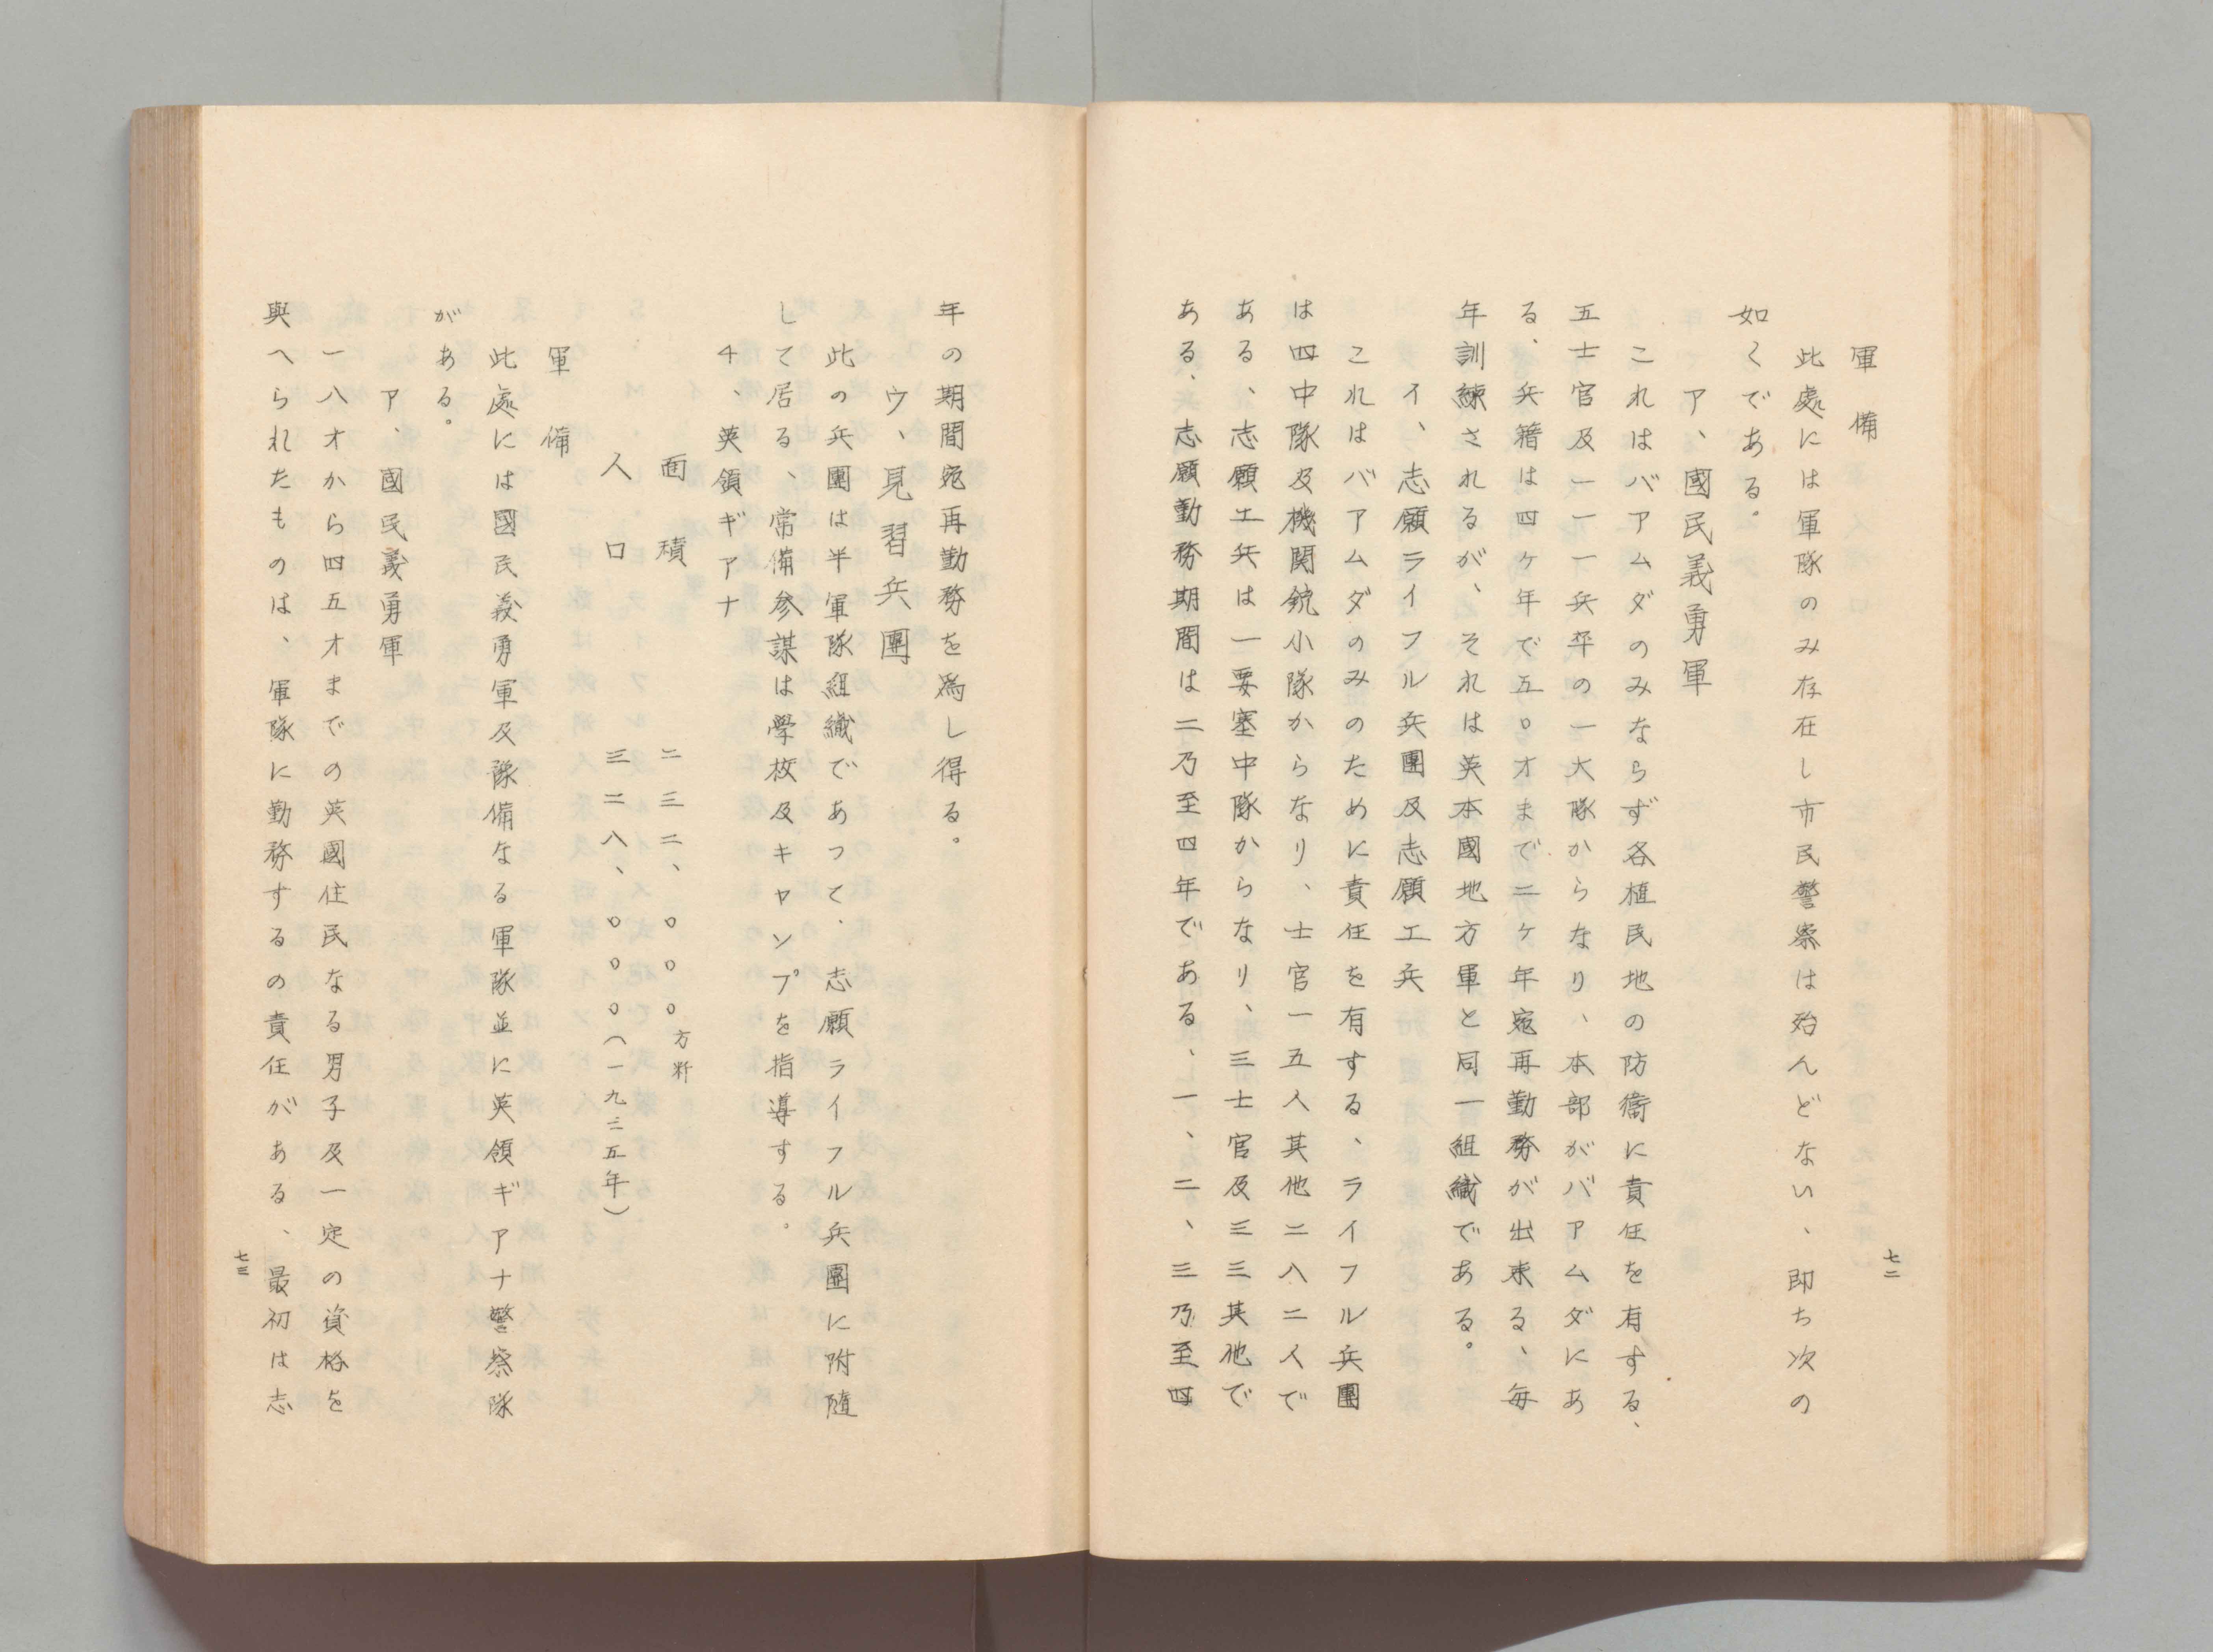 軍備
此處には軍隊のみ存在し市民警察は殆んどない、即ち次の
如くである。
ア、國民義勇軍
これはバアムダのみならず各植民地の防衞に責任を有する、
五士官及一一一兵卒の一大隊からなり、本部がバアムダにあ
る、兵籍は四ヶ年で五〇才まで二ヶ年宛再勤務が出来る、毎
年訓練されるが、それは英本國地方軍と同一組織である。
イ、志願ライフル兵團及志願工兵
これはバアムダのみのために責任を有する、ライフル兵團
は四中隊及機関銃小隊からなり、士官一五人其他二八二人で
ある、志願工兵は一要塞中隊からなり、三士官及三三其他で
ある、志願勤務期間は二乃至四年である、一、二、三乃至四
七二
年の期間宛再勤務を爲し得る。
ウ、見習兵團
此の兵團は半軍隊組織であって、志願ライフル兵團に附随
して居る、常備参謀は學校及キャンプを指導する。
4、英領ギアナ
面積 二三二、〇〇〇方粁
人口 三二八、〇〇〇(一九三五年)
軍備
此處には國民義勇軍及豫備なる軍隊並に英領ギアナ警察隊
がある。
ア、國民義勇軍
一八才から四五才までの英國住民なる男子及一定の資格を
與へられたものは、軍隊に勤務するの責任がある、最初は志
七三